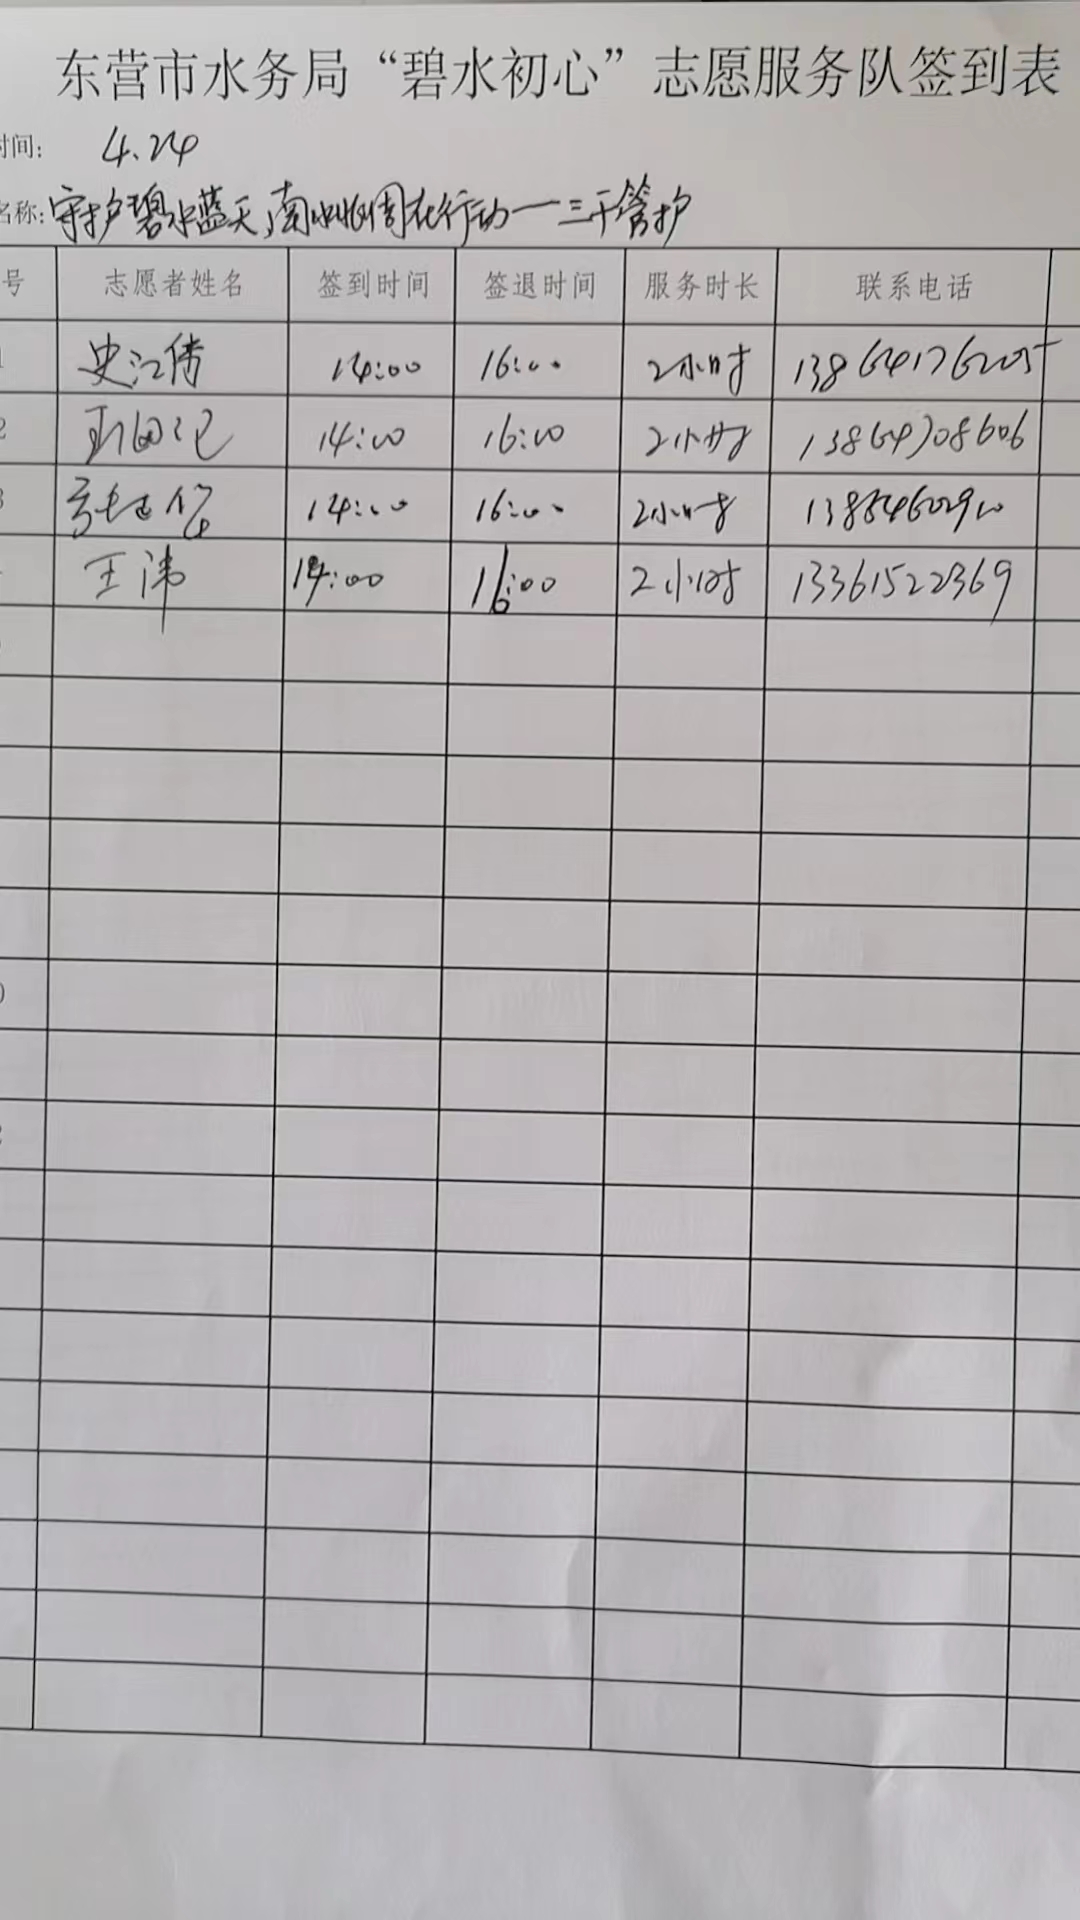 东营市水务局“碧水初心”志愿服务队签到表
时间: 4.24
名称: 守护碧水蓝天,南水北调在行动一三干管护
号 志愿者姓名 签到时间 签退时间 服务时长 联系电话
1 史江涛 14:00 16:00 2小时 13864176205
2 14:00 16:00 2小时 13864708606
3 14:00 16:00 2小时 13854602910
王沛 14:00 16:00 2小时 13361522369
0
2